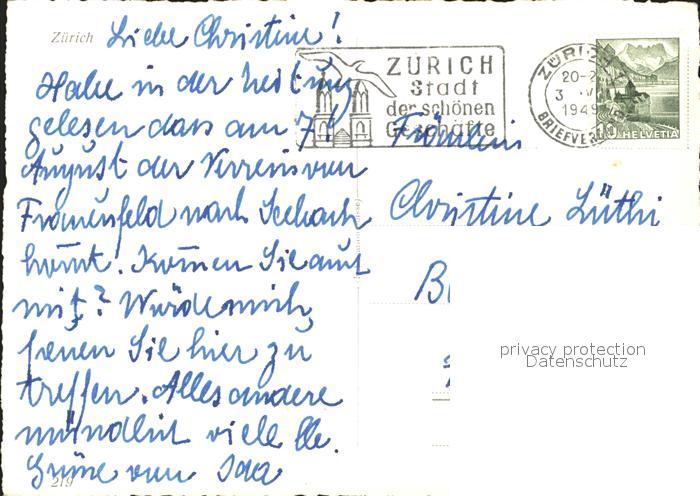 Zürich
Liebe Christine!
Habe in der Zeitung
gelesen dass am 7.
August der Verein von
Frauenfeld nach Seebach
kommt. Kommen Sie auch
mit? Würde mich
freuen Sie hier zu
treffen. Alles andere
mündlich viele lb.
Grüsse von Ida
219
ZÜRICH
Stadt
der schönen
Geschäfte
ZÜRICH
20-2
3
1949
BRIEFVER
10 HELVETIA
Fräulein
Christine Lüthi
B
privacy protection
Datenschutz